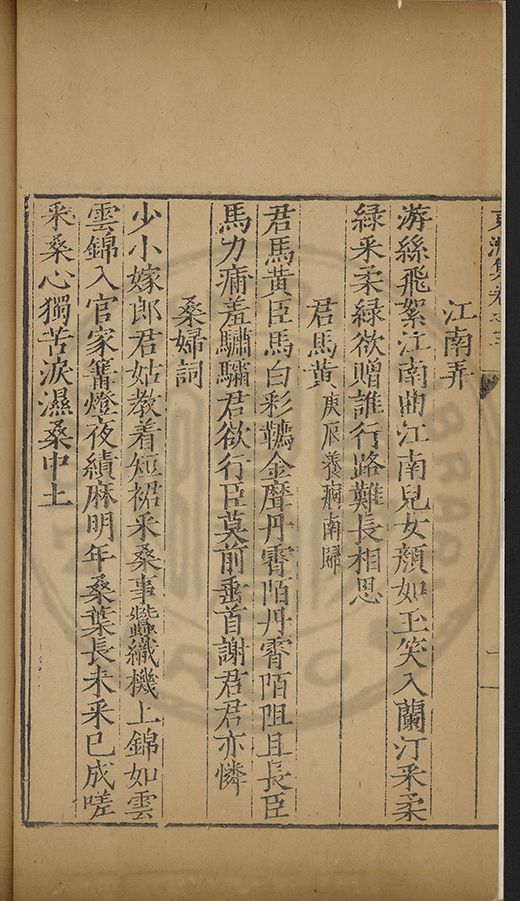 江南弄
游絲飛絮江南曲江南兒女顏如玉笑入蘭汀采柔
綠采柔綠欲贈誰行路難長相思
君馬黃 庚辰養痾南歸
君馬黃臣馬白彩韉金麾丹霄陌丹霄陌阻且長臣
馬力痡羞驌驦君欲行臣莫前垂首謝君君亦憐
桑婦詞
少小嫁郎君姑教着短裙采桑事蠶織機上錦如雲
雲錦入官家篝燈夜績麻明年桑葉長未采已成嗟
采桑心獨苦淚濕桑中土